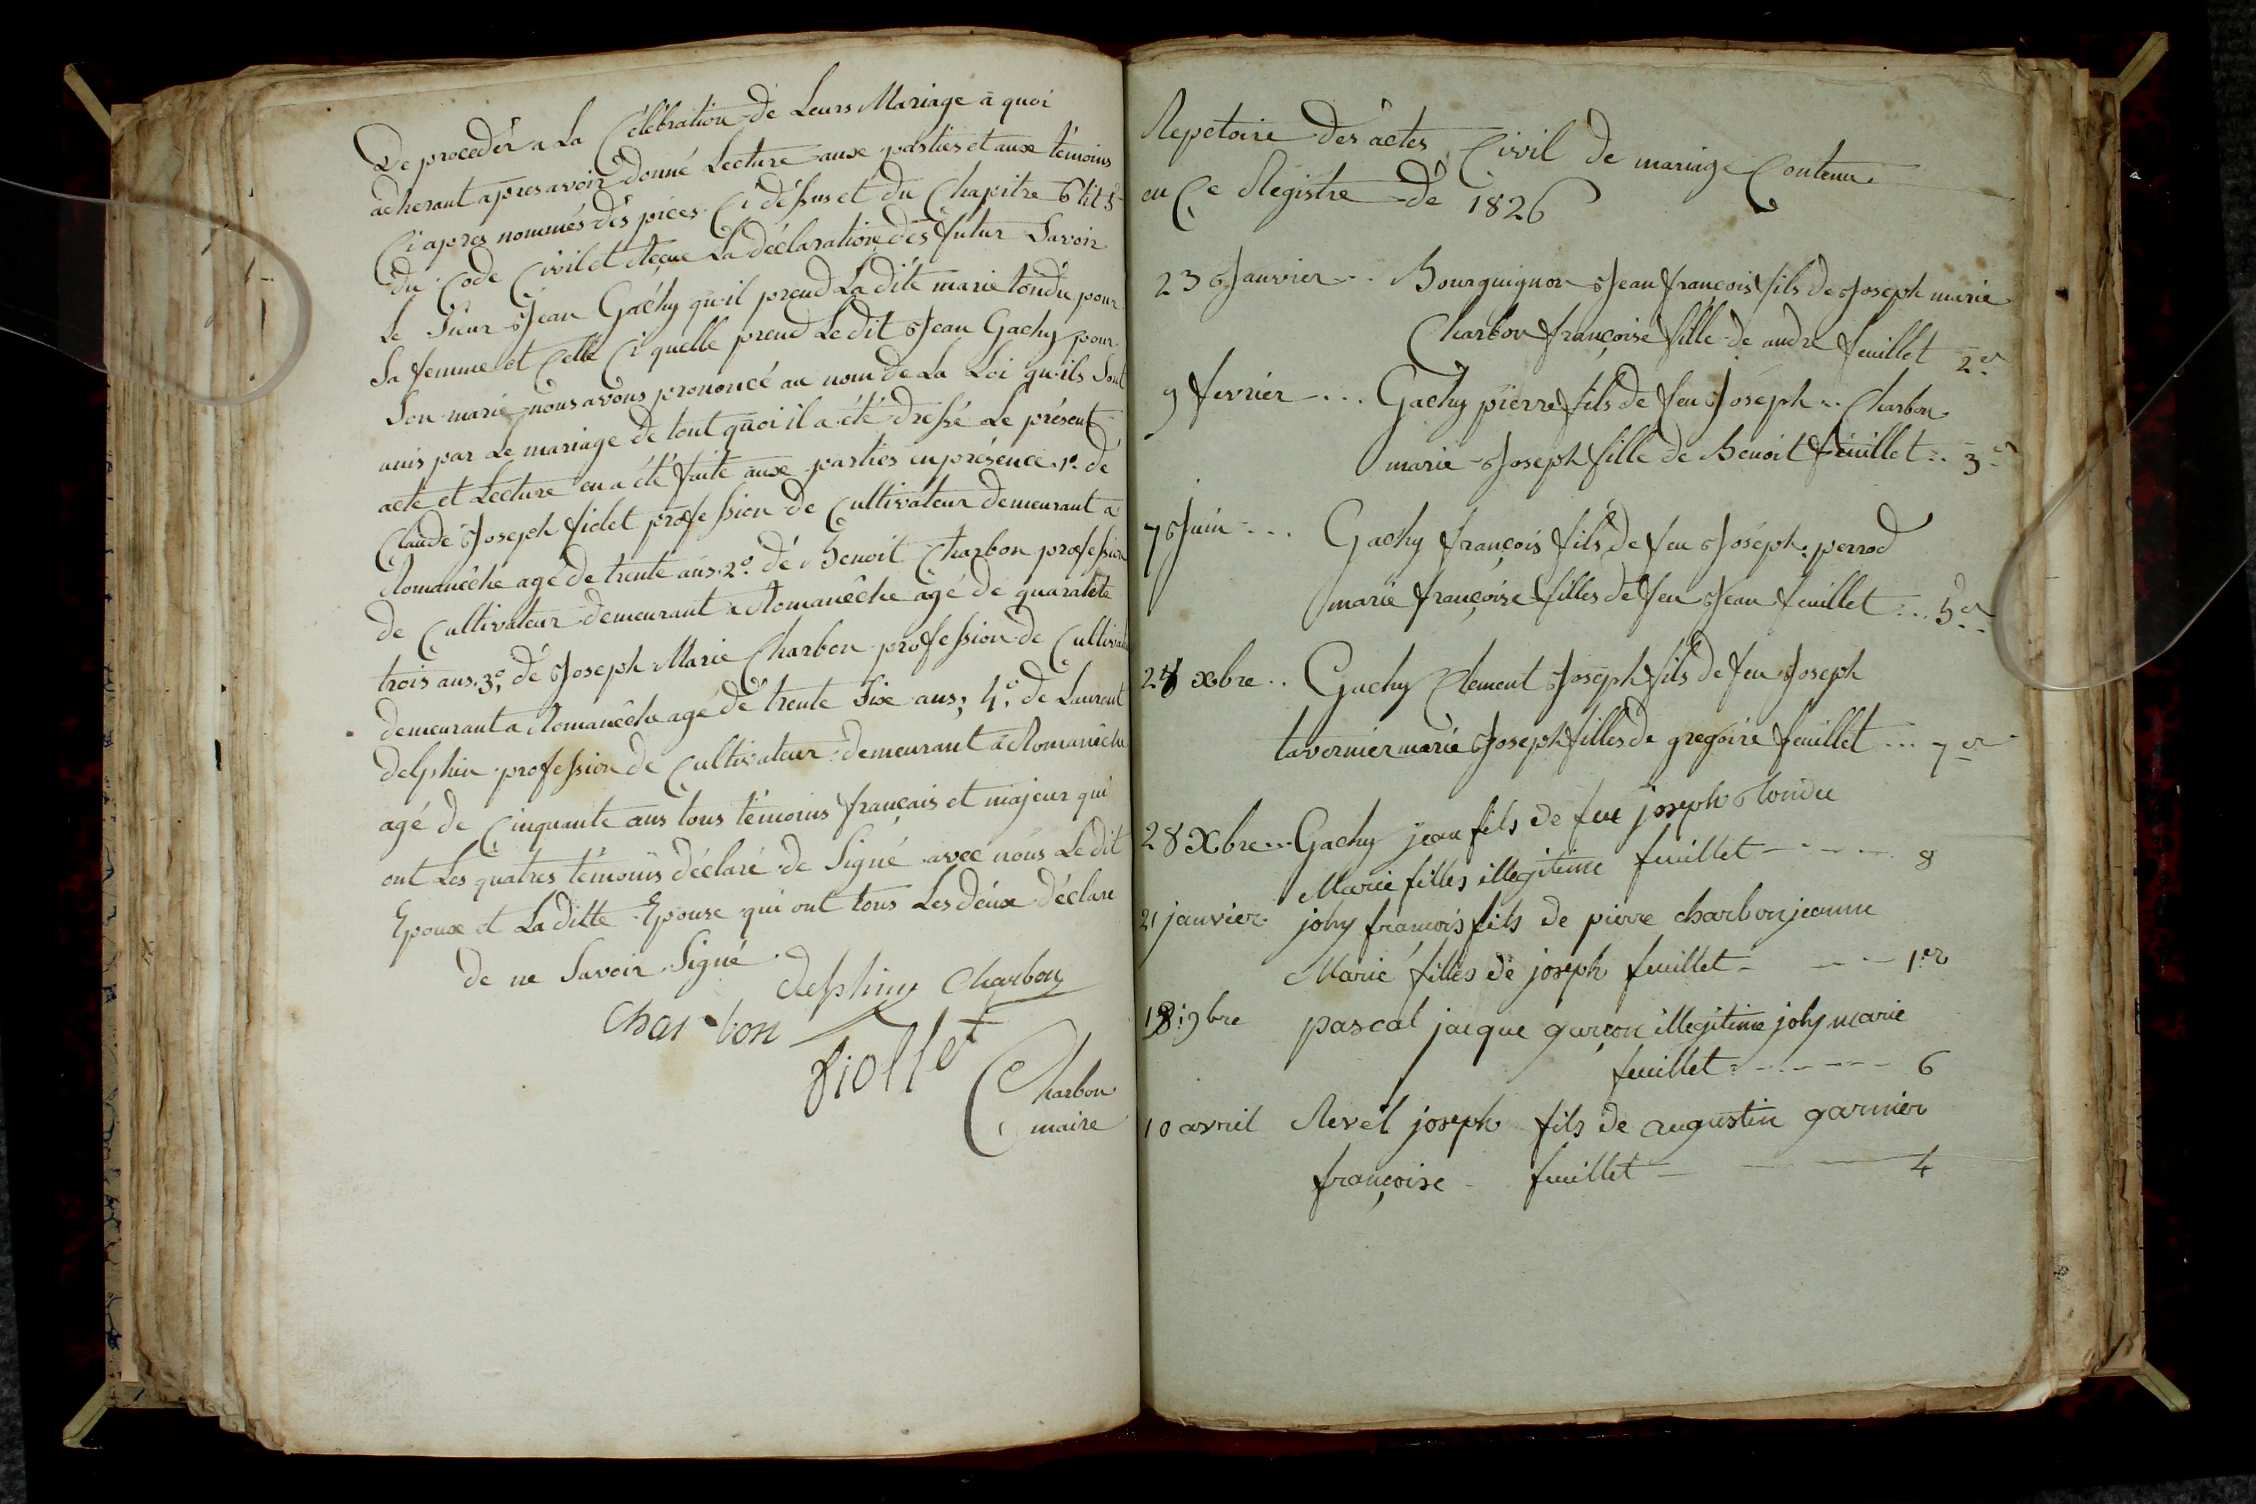 De procedér a La Célébration de Leurs Mariage a quoi
adherant apres avoir donné Lecture aux parties et aux témoins
Ci apres nommés des pices Ci déssus et du Chapitre 6 tit 5
du Code Civil et Reçue La déclaration des futur Savoir
Le Sieur Jean Gachy qu'il prend La dite marie tondu pour
Sa femme et Celle Ci quelle prend Le dit Jean Gachy pour
Son marie nous avons prononcé au nom de La Loi qu'ils Sont
unis par Le mariage de tout quoi il a été dressé Le présent
acte et Lecture en a été faite aux parties en présence 1º. de
Claude Joseph fiolet profession de Cultivateur demeurant a
Romanêche agé de trente ans. 2º. de Benoit Charbon profession
de Cultivateur demeurant a Romanêche agé de quarante
trois ans. 3º. de Joseph Marie Charbon profession de Cultivateur
demeurant a Romanêche agé de trente Six ans; 4º. de Laurent
delphin profession de Cultivateur demeurant a Romanêche
agé de Cinquante ans tous témoins français et majeur qui
ont Les quatres témoins déclaré de Signé avec nous Le dit
Epoux et La ditte Epouse qui ont tous Les deux déclare
de ne Savoir Signé
delphin Charbon
Charbon
fiollet
Charbon
maire
Repetoire des actes Civil de mariage Contenu
en Ce Registre de 1826
23 Janvier .. Bourguignon Jean françois fils de Joseph marie
Charbon françoise fille de andre feuillet 2er
9 fevrier ... Gachy pierre fils de feu Joseph .. Charbon
marie Joseph fille de Benoit feuillet .. 3er
7 Juin ... Gachy françois fils de feu Joseph. perrod
marie françoise filles de feu Jean feuillet ... 5er
24 xbre .. Gachy Clement Joseph fils de feu Joseph
tavernier marie Joseph filles de gregoire feuillet ... 7er
28 Xbre... Gachy jean fils de feu joseph tondu
Marie filles illegitime feuillet - - - - - 8
21 janvier joly francois fils de pierre charbon jeanne
Marie filles de joseph feuillet - - - - 1.er
18 9bre pascal jacque garçon illegitime joly marie
feuillet - - - - - - 6
10 avril Revel joseph fils de augustin garnier
françoise - feuillet - - - 4